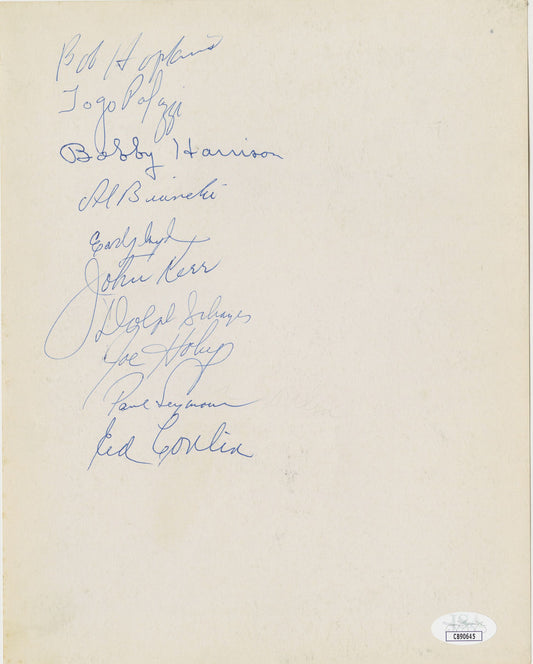 Bob Hopkins
Togo Palazzi
Bobby Harrison
Al Bianchi
Earl Lloyd
John Kerr
Dolph Schayes
Joe Holup
Paul Seymour
Ed Conlin
JSA
CB90645